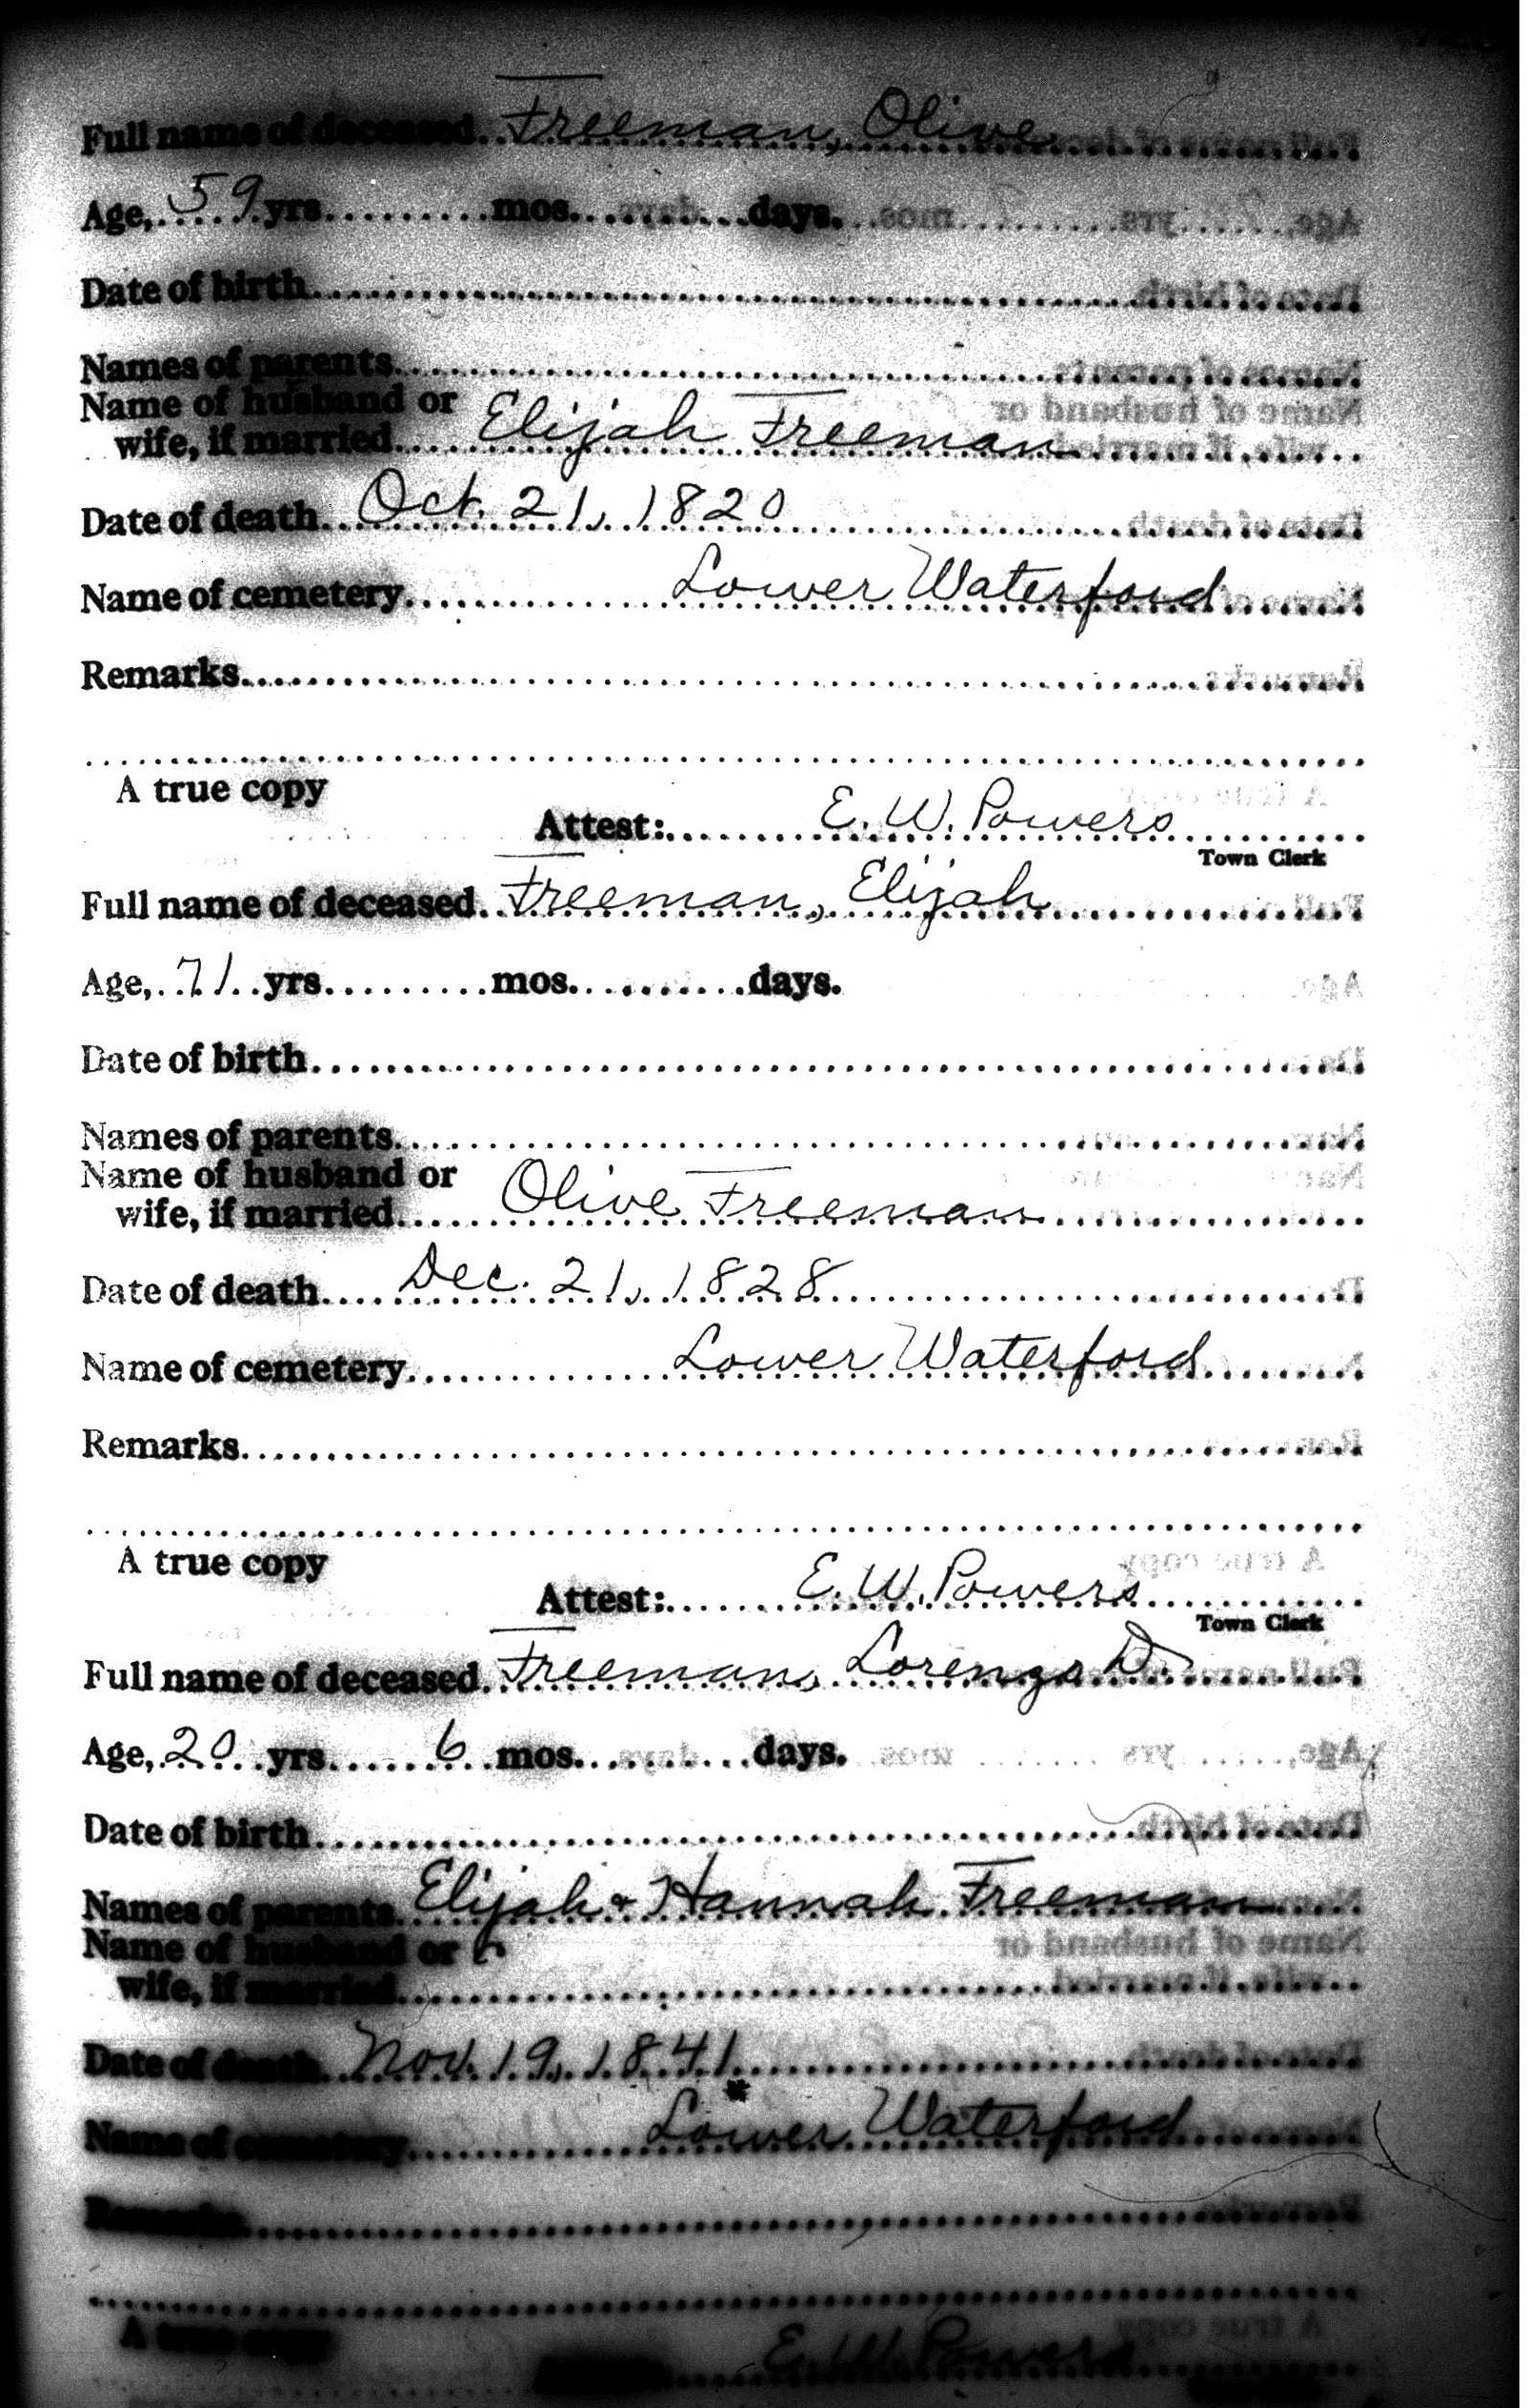 Full name of deceased Freeman, Olive
Age, 59 yrs. mos. days.
Date of birth
Names of parents
Name of husband or
wife, if married Elijah Freeman
Date of death Oct. 21, 1820
Name of cemetery Lower Waterford
Remarks
A true copy
Attest: E. W. Powers
Town Clerk
Full name of deceased Freeman, Elijah
Age, 71 yrs. mos. days.
Date of birth
Names of parents
Name of husband or
wife, if married Olive Freeman
Date of death Dec. 21, 1828
Name of cemetery Lower Waterford
Remarks
A true copy
Attest: E. W. Powers
Town Clerk
Full name of deceased Freeman, Lorenzo D.
Age, 20 yrs. 6 mos. days.
Date of birth
Names of parents Elijah & Hannah Freeman
Name of husband or
wife, if married
Date of death Nov. 19, 1841
Name of cemetery Lower Waterford
Remarks
A true copy
E. W. Powers